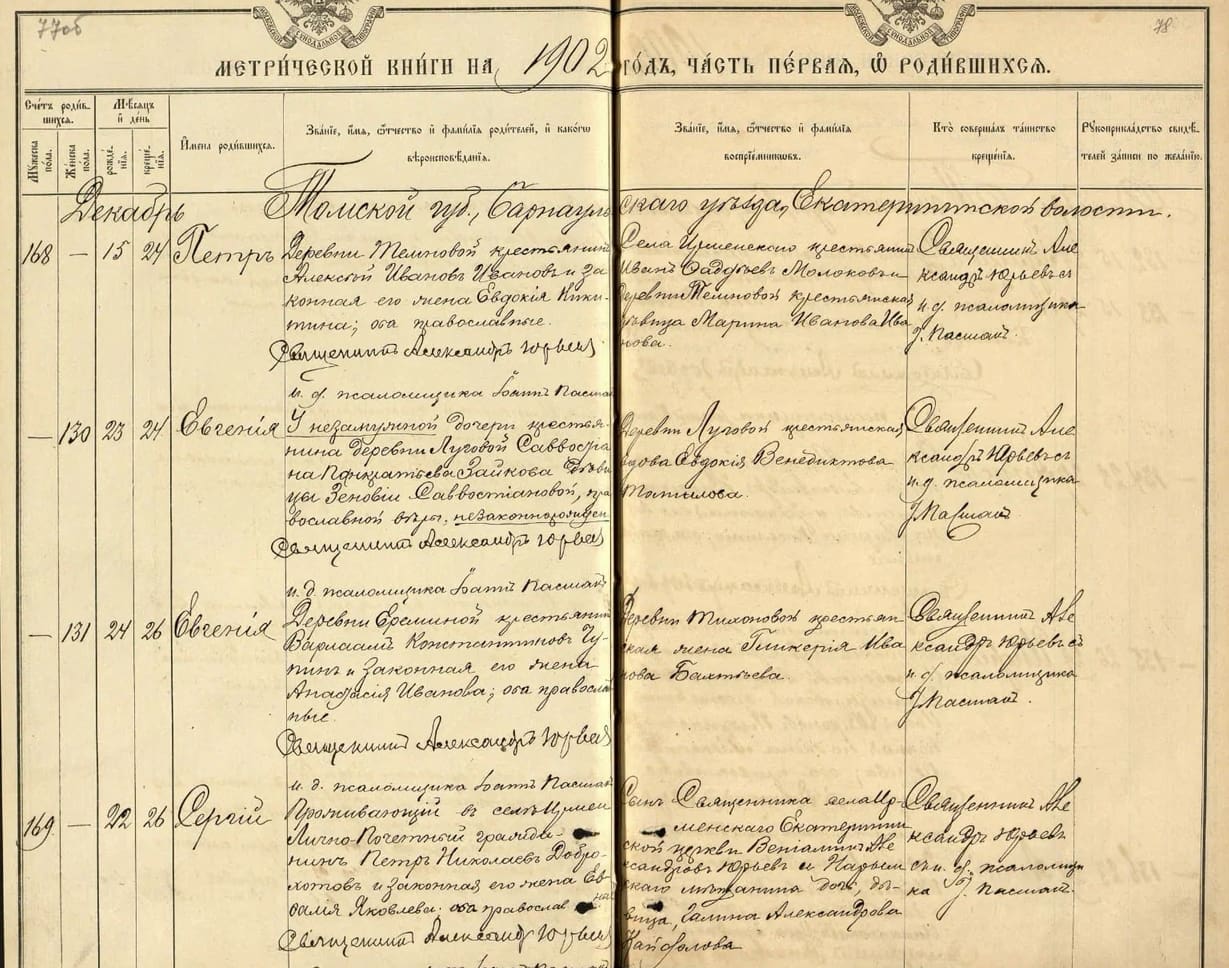 77об
78
МЕТРИ́ЧЕСКОЙ КНИ́ГИ НА 1902 ГО́ДЪ, ЧА́СТЬ ПЕ́РВАЯ, Ѽ РОДИ́ВШИХСЯ.
Сче́тъ роди́в-
шихся.
Му́жеска по́ла.
Же́нска по́ла.
Мѣ́сяцъ
и҆ де́нь
рожде́-
нїя.
креще́-
нїя.
И҆мена̀ роди́вшихся.
Зва́нїе, и҆́мя, ѻ҆́тчество и҆ фами́лїя роди́телей, и҆ како́гѡ
вѣроисповѣ́данїя.
Зва́нїе, и҆́мя, ѻ҆́тчество и҆ фами́лїя
воспрїе́мникѡвъ.
Кто̀ соверша́лъ та́инство
креще́нїя.
Рꙋкоприкла́дство свидѣ́-
телей за́писи по жела́нїю.
Декабрь
Томской губ., Барнаульскаго уѣзда, Екатерининской волости.
168 — 15 24 Петръ
Деревни Темновой крестьянинъ
Алексѣй Ивановъ Ивановъ и за
конная его жена Евдокія Ники-
тина; оба православные.
Священникъ Александръ Юрьевъ
и. д. псаломщика
Села Ирменскаго крестьянинъ
Иванъ Молоковъ и
деревни Темновой крестьянская
дѣвица Марина Иванова Ива
нова.
Священникъ Але
ксандръ Юрьевъ съ
и. д. псаломщика
— 130 23 24 Евгенія
У незамужной дочери крестья-
нина деревни Луговой Саввостіа
на Зайкова дѣви
цы Зеновіи Саввостіановой, пра
вославной вѣры, незаконнорожден
Священникъ Александръ Юрьевъ
и. д. псаломщика
Деревни Луговой крестьянская
вдова Евдокія Венедиктова
Священникъ Але
ксандръ Юрьевъ съ
и. д. псаломщика
— 131 24 26 Евгенія
Деревни Ереминой крестьянинъ
Варлаамъ Константиновъ Чу-
пинъ и законная его жена
Анафасія Иванова; оба православ
ные.
Священникъ Александръ Юрьевъ
и. д. псаломщика
Деревни Тихоновой крестьян
ская жена Гликерія Ива
нова Бахтьева.
Священникъ Але
ксандръ Юрьевъ съ
и. д. псаломщика
169 — 22 26 Сергій
Проживающій въ селѣ Ирмен
Лично-Почетный гражда-
нинъ Петръ Николаевъ Добро-
хотовъ и законная его жена Ев
дамя Яковлева. оба православ
ны
Священникъ Александръ Юрьевъ
Сынъ Священника села Ир-
менскаго Екатеринин
ской церкви Веніаминъ Але
ксандровъ Юрьевъ и Нарым
скаго мѣщанина дочь, дѣ-
вица, Галина Александрова
Кайдалова
Священникъ Але
ксандръ Юрьевъ
съ и. д. псаломщи
ка